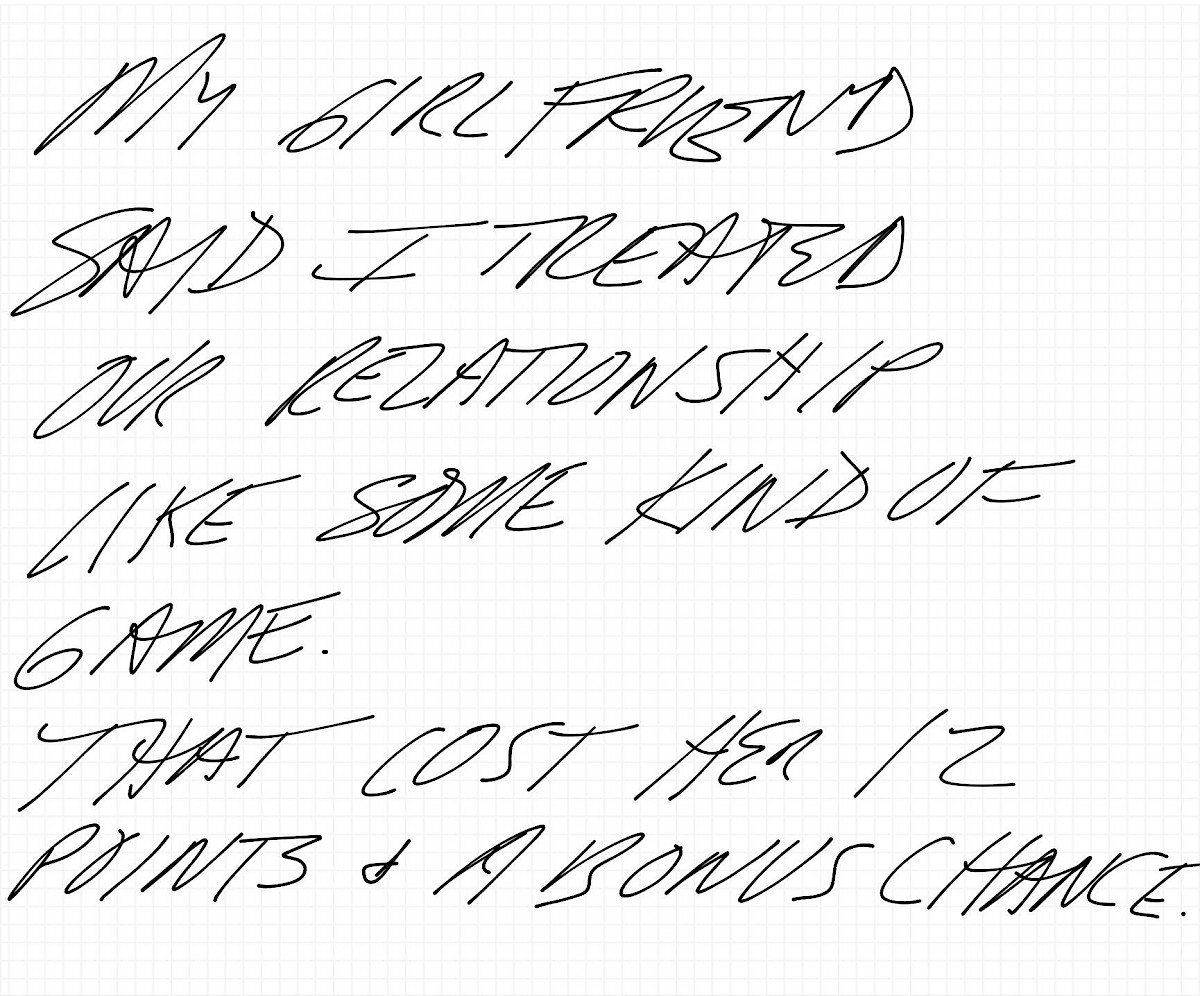 MY GIRLFRIEND
SAID I TREATED
OUR RELATIONSHIP
LIKE SOME KIND OF
GAME.
THAT COST HER 12
POINTS & A BONUS CHANCE.